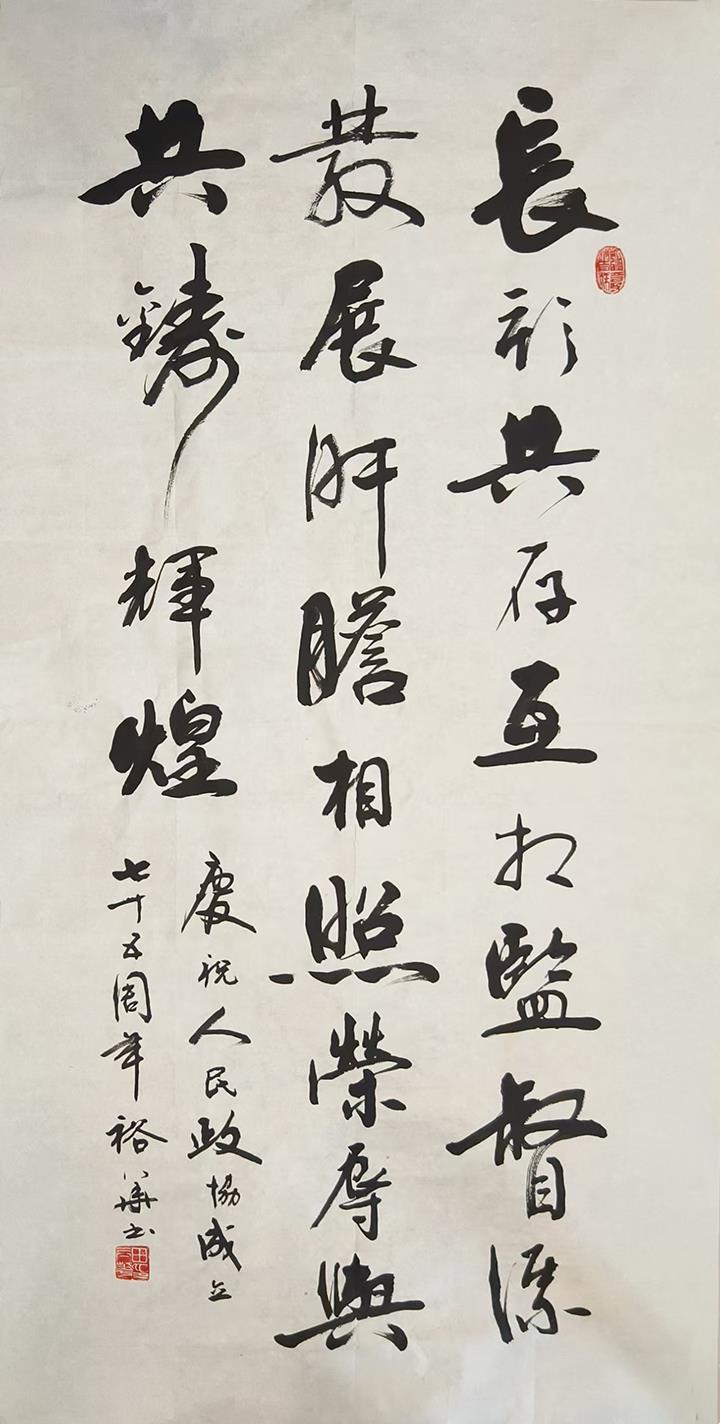 長形共存互相監督深
發展肝膽相照榮辱與
共鑄輝煌
慶祝人民政協成立
七十五周年裕華书